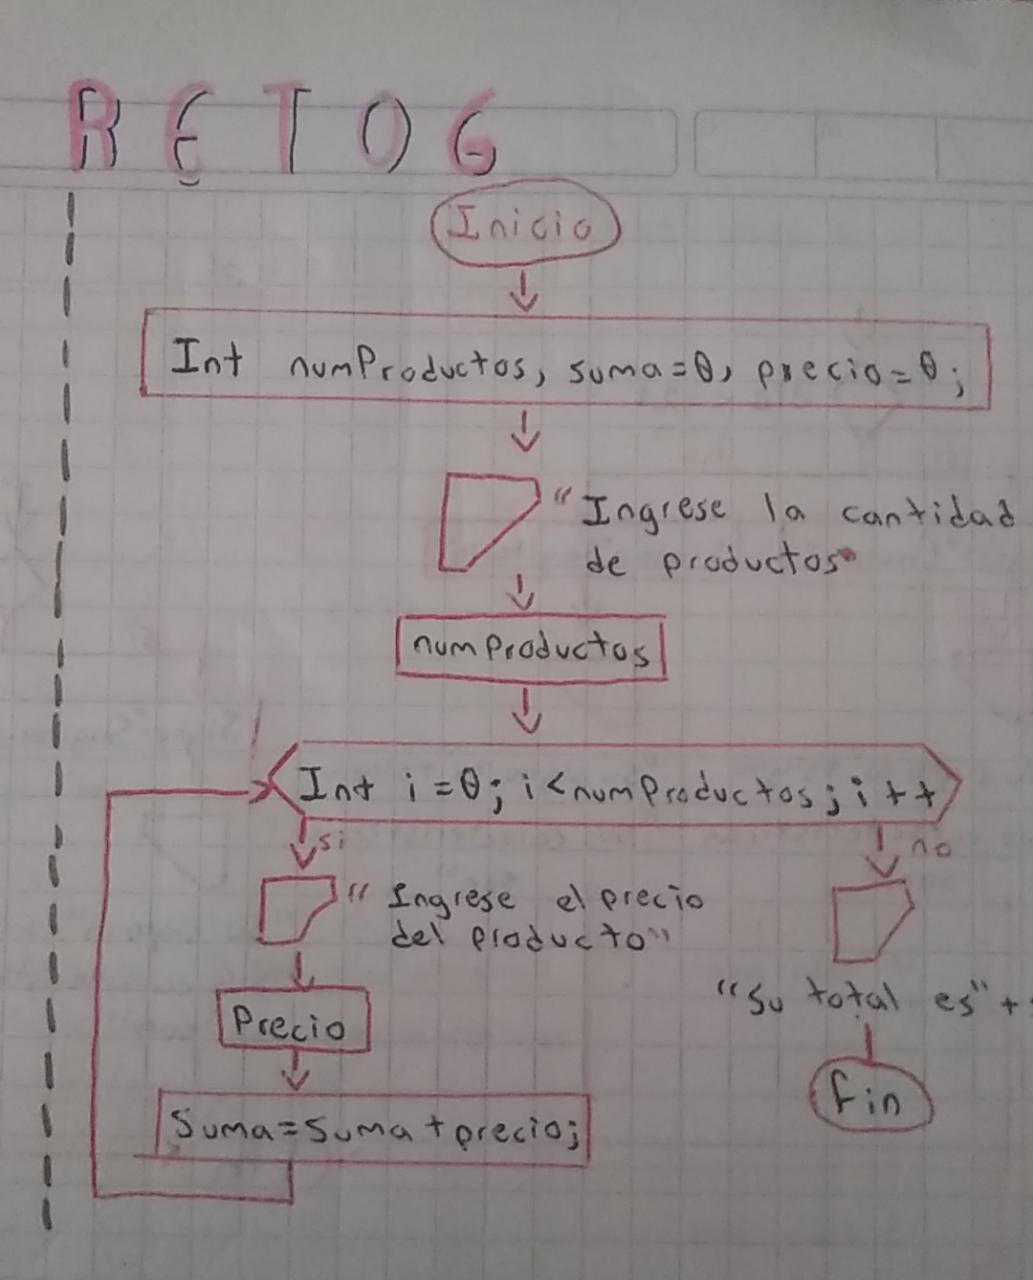 RETO 6
Inicio
Int numProductos, suma=0, precio=0;
"Ingrese la cantidad
de productos"
numProductos
Int i=0; i<numProductos; i++
si
no
"Ingrese el precio
del producto"
Precio
Suma=suma+precio;
"Su total es"+
Fin